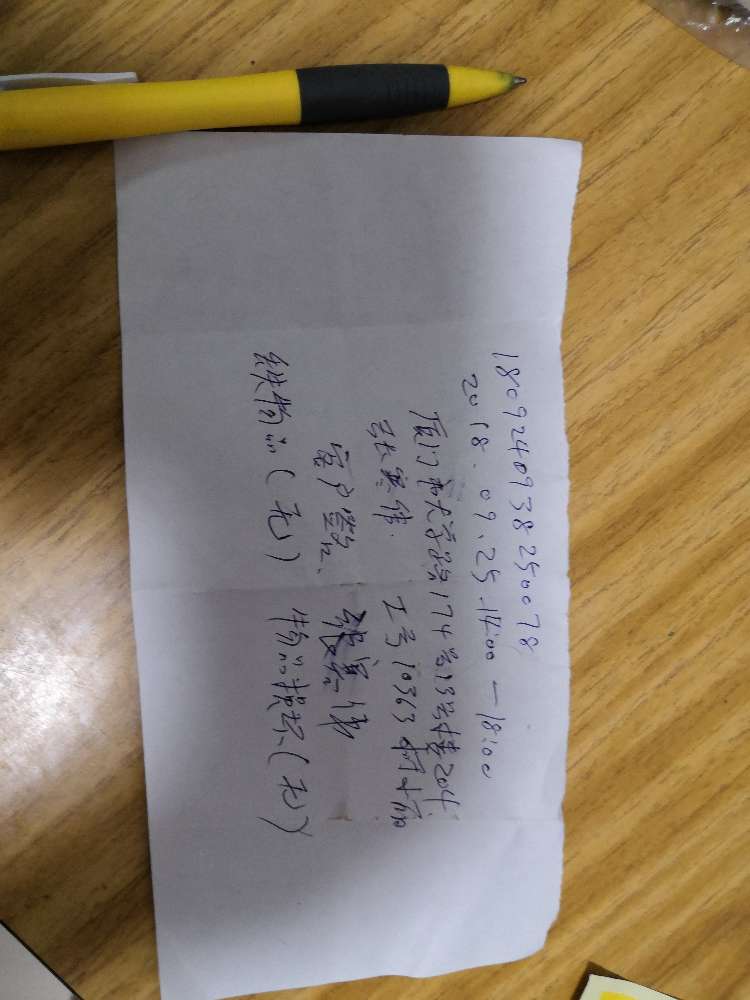 1809240938250078
2018.09.25.14:00—18:00
厦门市大学路174号13号楼204.
张 伟. 工号10363
客户签名、
缺物品(无) 物品损坏(无)